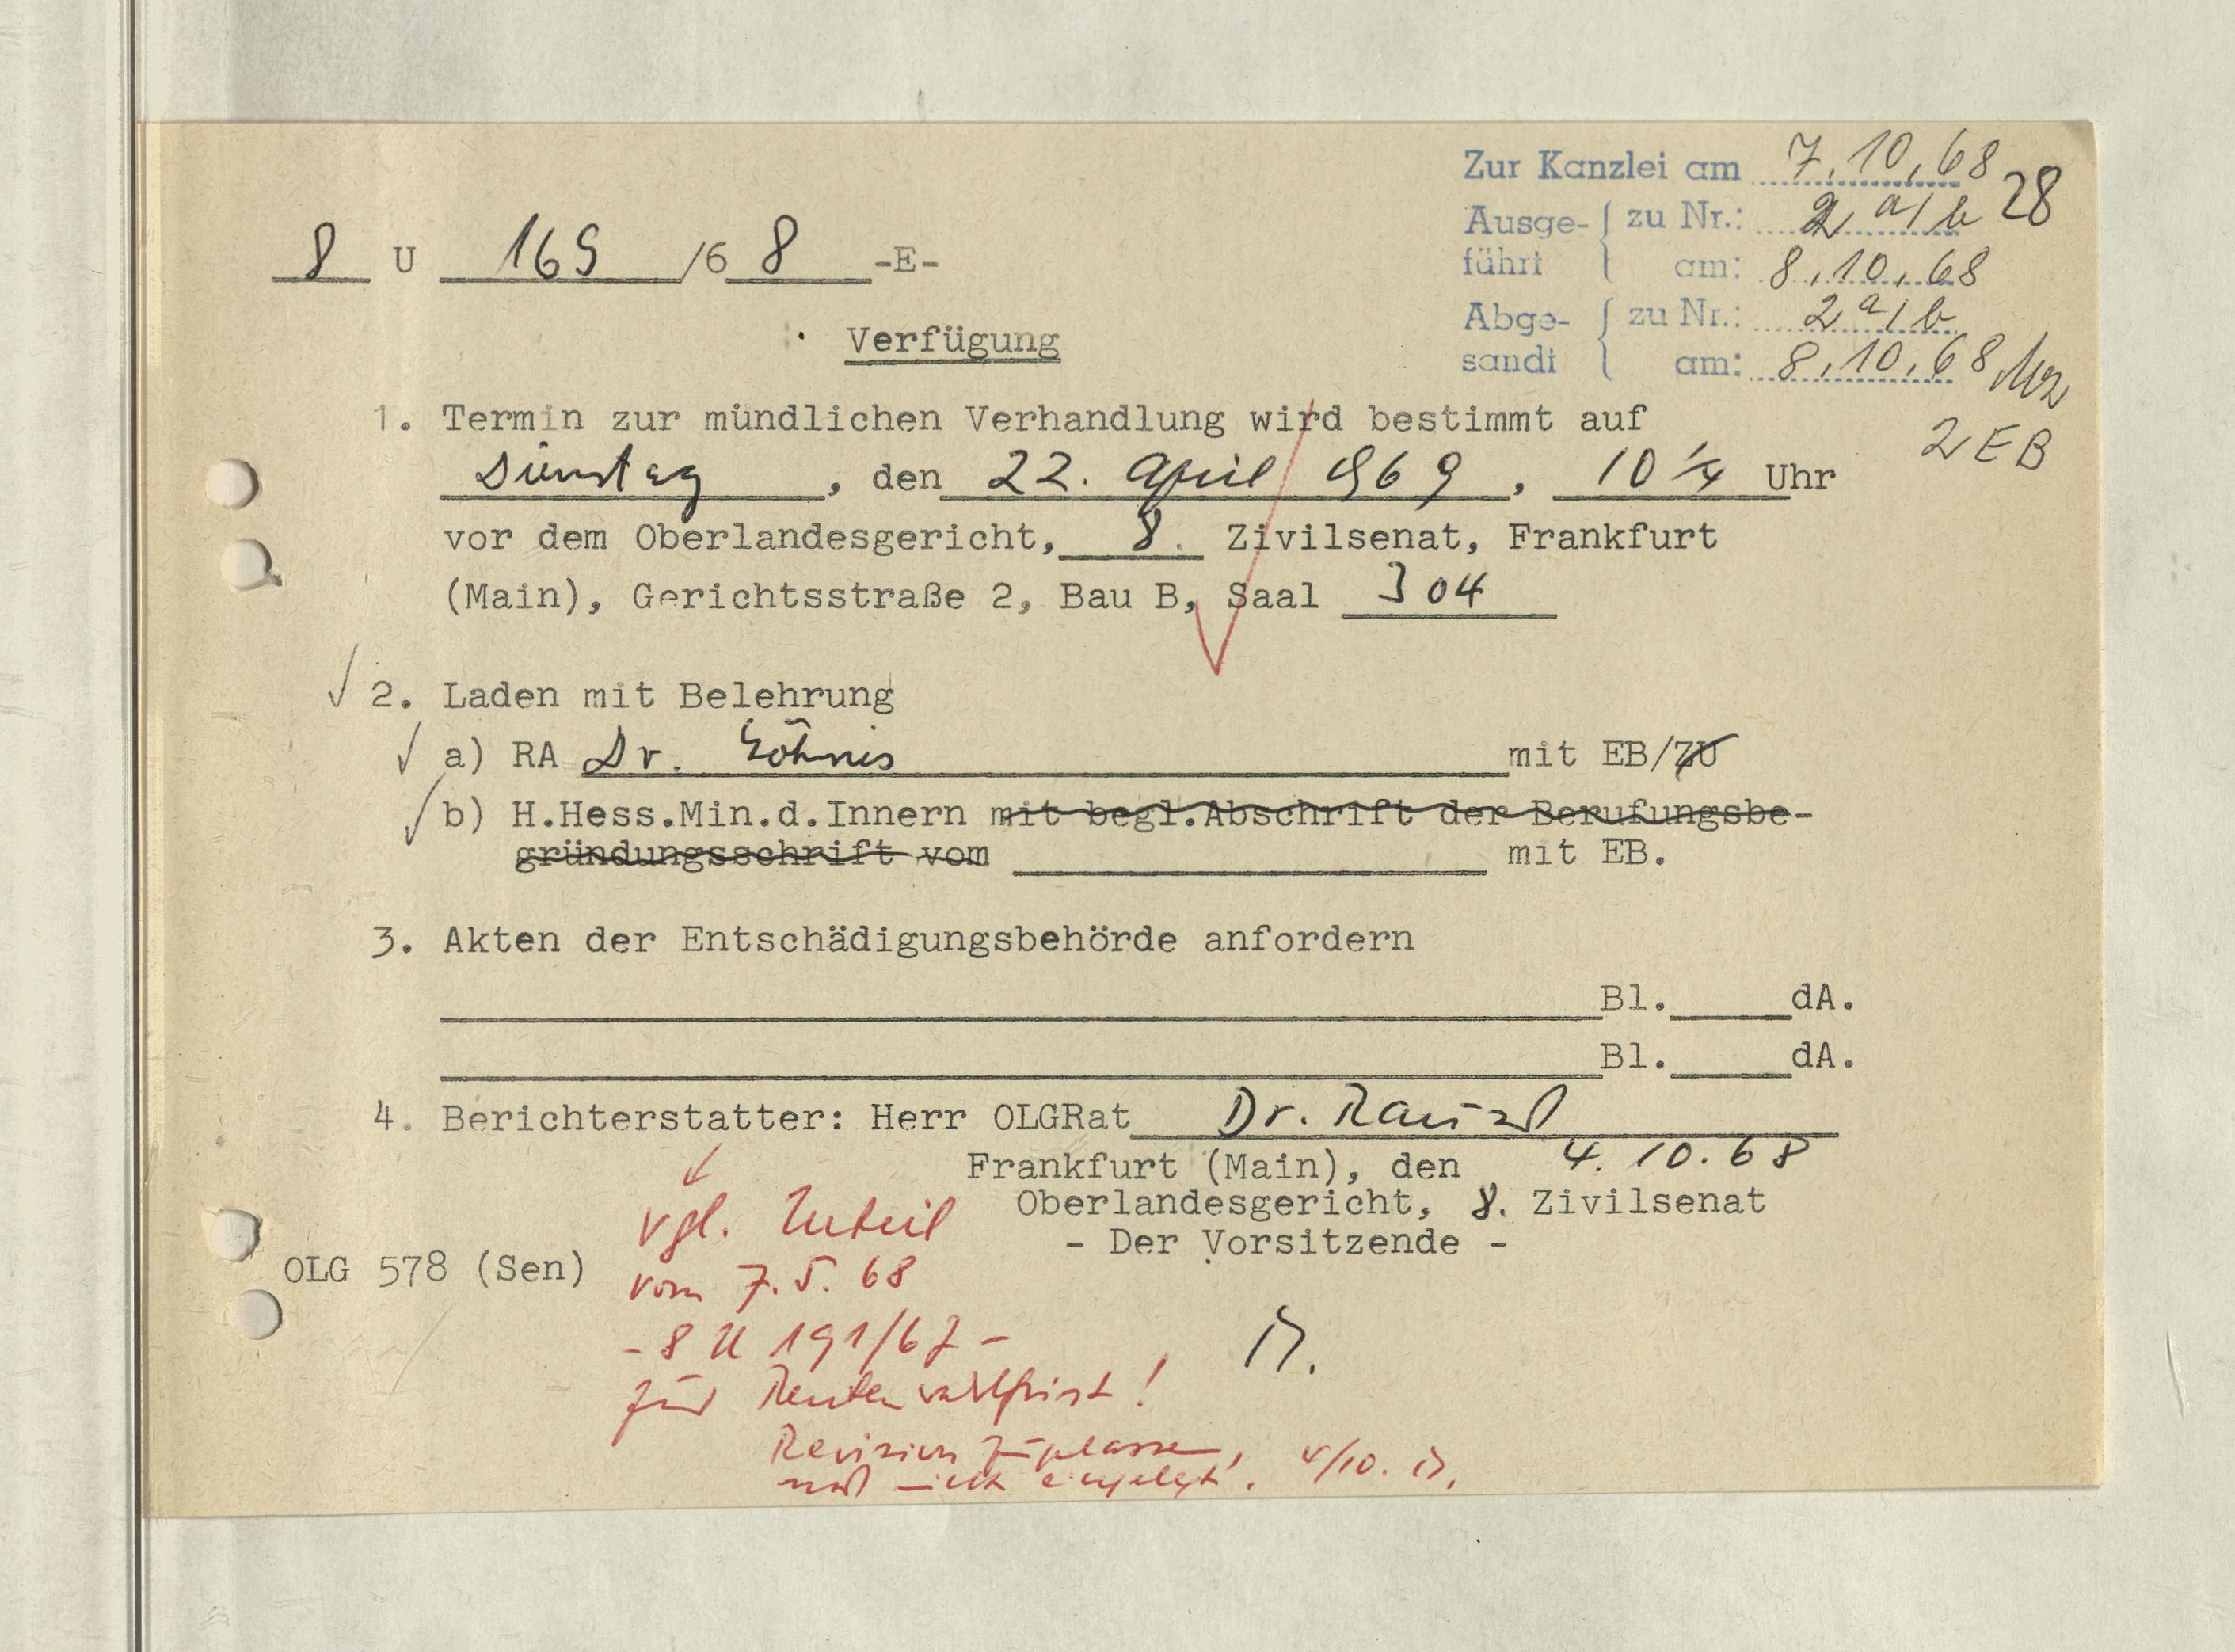 Zur Kanzlei am 7.10.68
28
Ausge- führt { zu Nr.: 2 a/b
am: 8.10.68
Abge- sandt { zu Nr.: 2 a/b
am: 8.10.68
2 EB
8 U 169 /68 -E-
Verfügung
1. Termin zur mündlichen Verhandlung wird bestimmt auf
Dienstag, den 22. April 1969, 10 1/4 Uhr
vor dem Oberlandesgericht, 8. Zivilsenat, Frankfurt
(Main), Gerichtsstraße 2, Bau B, Saal 304
2. Laden mit Belehrung
a) RA Dr. mit EB/ZU
b) H.Hess.Min.d.Innern mit begl.Abschrift der Berufungsbe-
gründungsschrift vom mit EB.
3. Akten der Entschädigungsbehörde anfordern
Bl. dA.
Bl. dA.
4. Berichterstatter: Herr OLGRat Dr.
Frankfurt (Main), den 4.10.68
Oberlandesgericht, 8. Zivilsenat
- Der Vorsitzende -
OLG 578 (Sen)
vgl. Urteil
vom 7.5.68
- 8 U 191/67 -
für Rentenwahlfrist!
Revision zugelassen,
noch nicht eingelegt! 4/10.